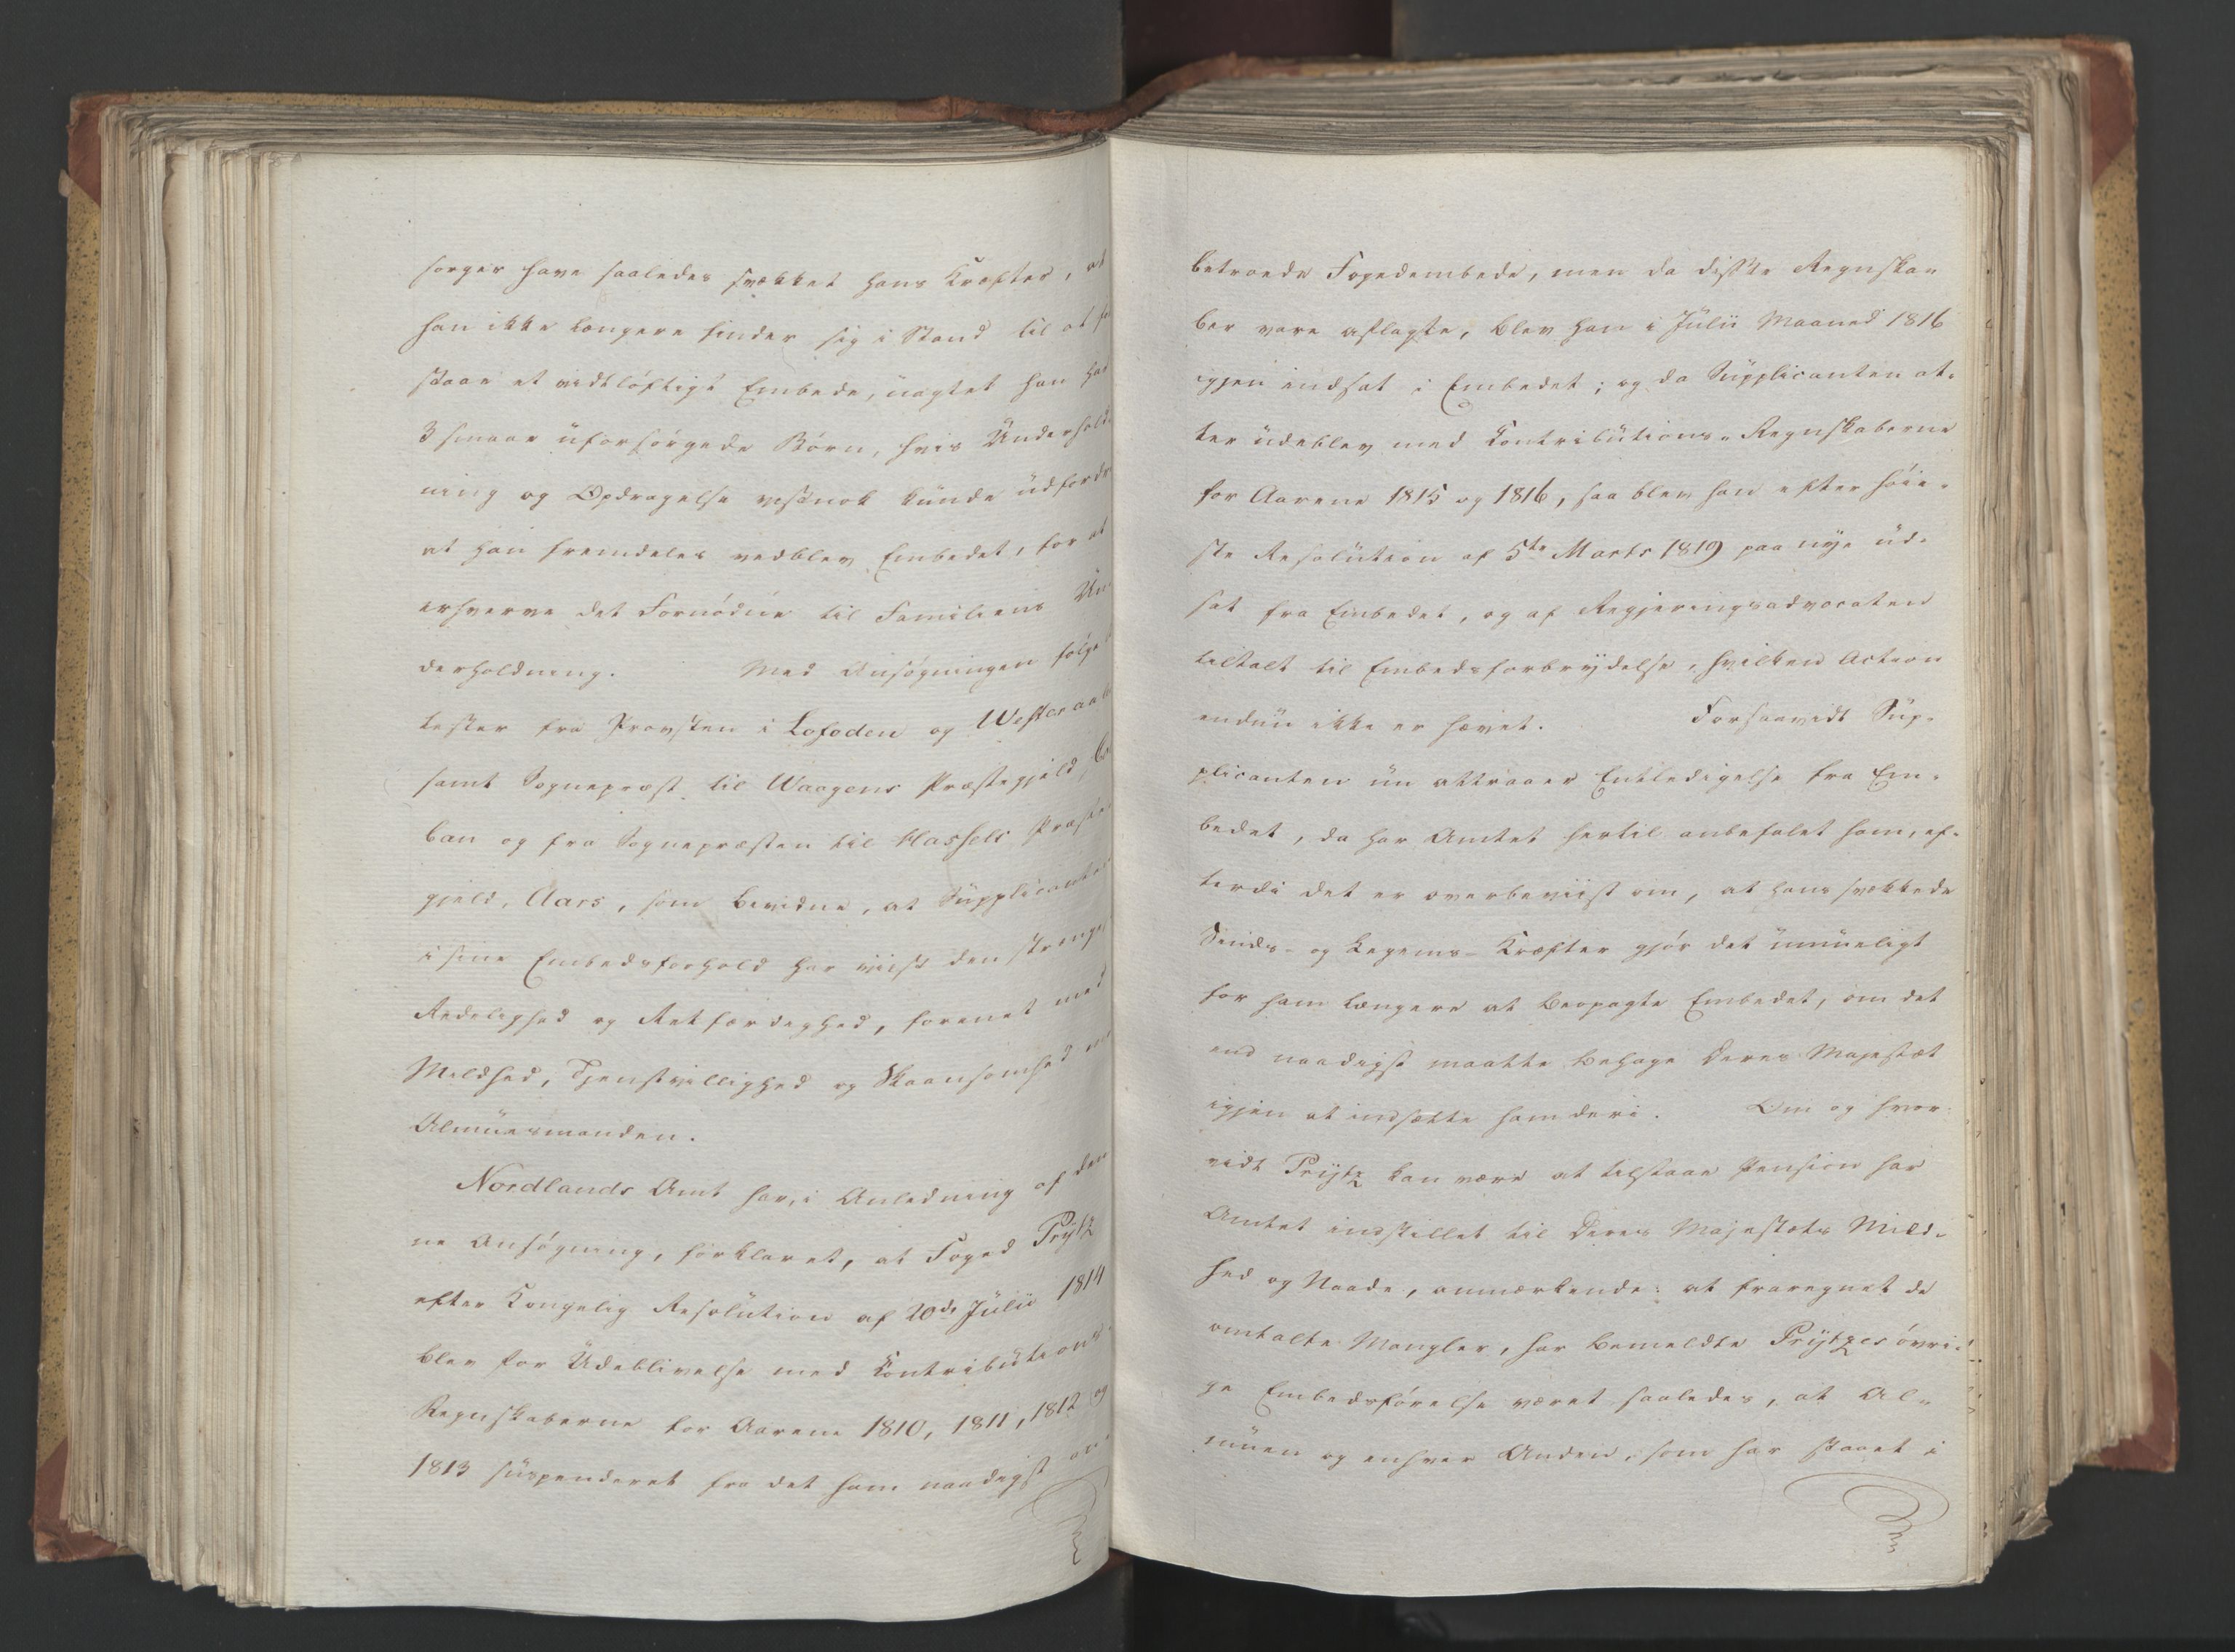 sorger have saaledes svækket hans Kræfter, at
han ikke længere finder sig i Stand til at fo
staae et vidtløftigt Embede, uagtet han har
3 smaae uforsørgede Børn, hvis Underhold
ning og Opdragelse vistnok kunde udfordre
at han fremdeles vedblev Embedet, for at
erhverve det Fornødne til Familiens Un
derholdning. Med Ansøgningen følge
tester fra Provsten i Lofoden og Westeraal
samt Sognepræst til Waagens Præstegjeld,
ban og fra Sognepræsten til Hassels Præste
gjeld, Aars, som bevidne, at Supplicanten
i sine Embedsforhold har viist den strenge
Redelighed og Retfærdighed, forenet med
Mildhed, Tjenstvillighed og Skaansomhed mod
Almuesmanden.
Nordlands Amt har, i Anledning af den
ne Ansøgning, forklaret, at Foged Prÿtz
efter Kongelig Resolution af 20de Julii 1814
blev for Udeblivelse med Contributions
Regnskaberne for Aarene 1810, 1811, 1812 og
1813 suspenderet fra det ham naadigst an
betroede Fogedembede, men da disse Regnska„
ber vare aflagte, blev han i Julii Maaned 1816
igjen indsat i Embedet; og da Supplicanten at„
ter udeblev med Contributions„Regnskaberne
for Aarene 1815 og 1816, saa blev han efter høie„
ste Resolution af 5te Marts 1819 paa nye ud„
sat fra Embedet, og af Regjeringsadvocaten
tiltalt til Embedsforbrydelse, hvilken Action
endnu ikke er hævet. Forsaavidt Sup„
plicanten nu attraaer Entledigelse fra Em„
bedet, da har Amtet hertil anbefalet ham, ef„
terdi det er overbeviist om, at hans svækkede
Sinds- og Legems-Kræfter gjør det umueligt
for ham længere at beopagte Embedet, om det
end naadigst maatte behage Deres Majestæt
igjen at indsætte ham deri. Om og hvor„
vidt Prÿtz kan være at tilstaae Pension har
Amtet indstillet til Deres Majestæts Mild„
hed og Naade, anmærkende: at fraregnet de
omtalte Mangler, har bemeldte Prÿtzes øvri„
ge Embedsførelse været saaledes, at Al„
muen og enhver Anden, som har staaet i